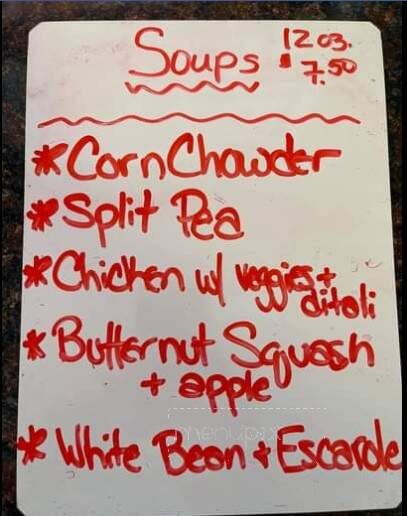 Soups 12 oz.
$7.50
*Corn Chowder
*Split Pea
*Chicken w/ veggies +
ditali
*Butternut Squash
+ apple
menupix
*White Bean + Escarole